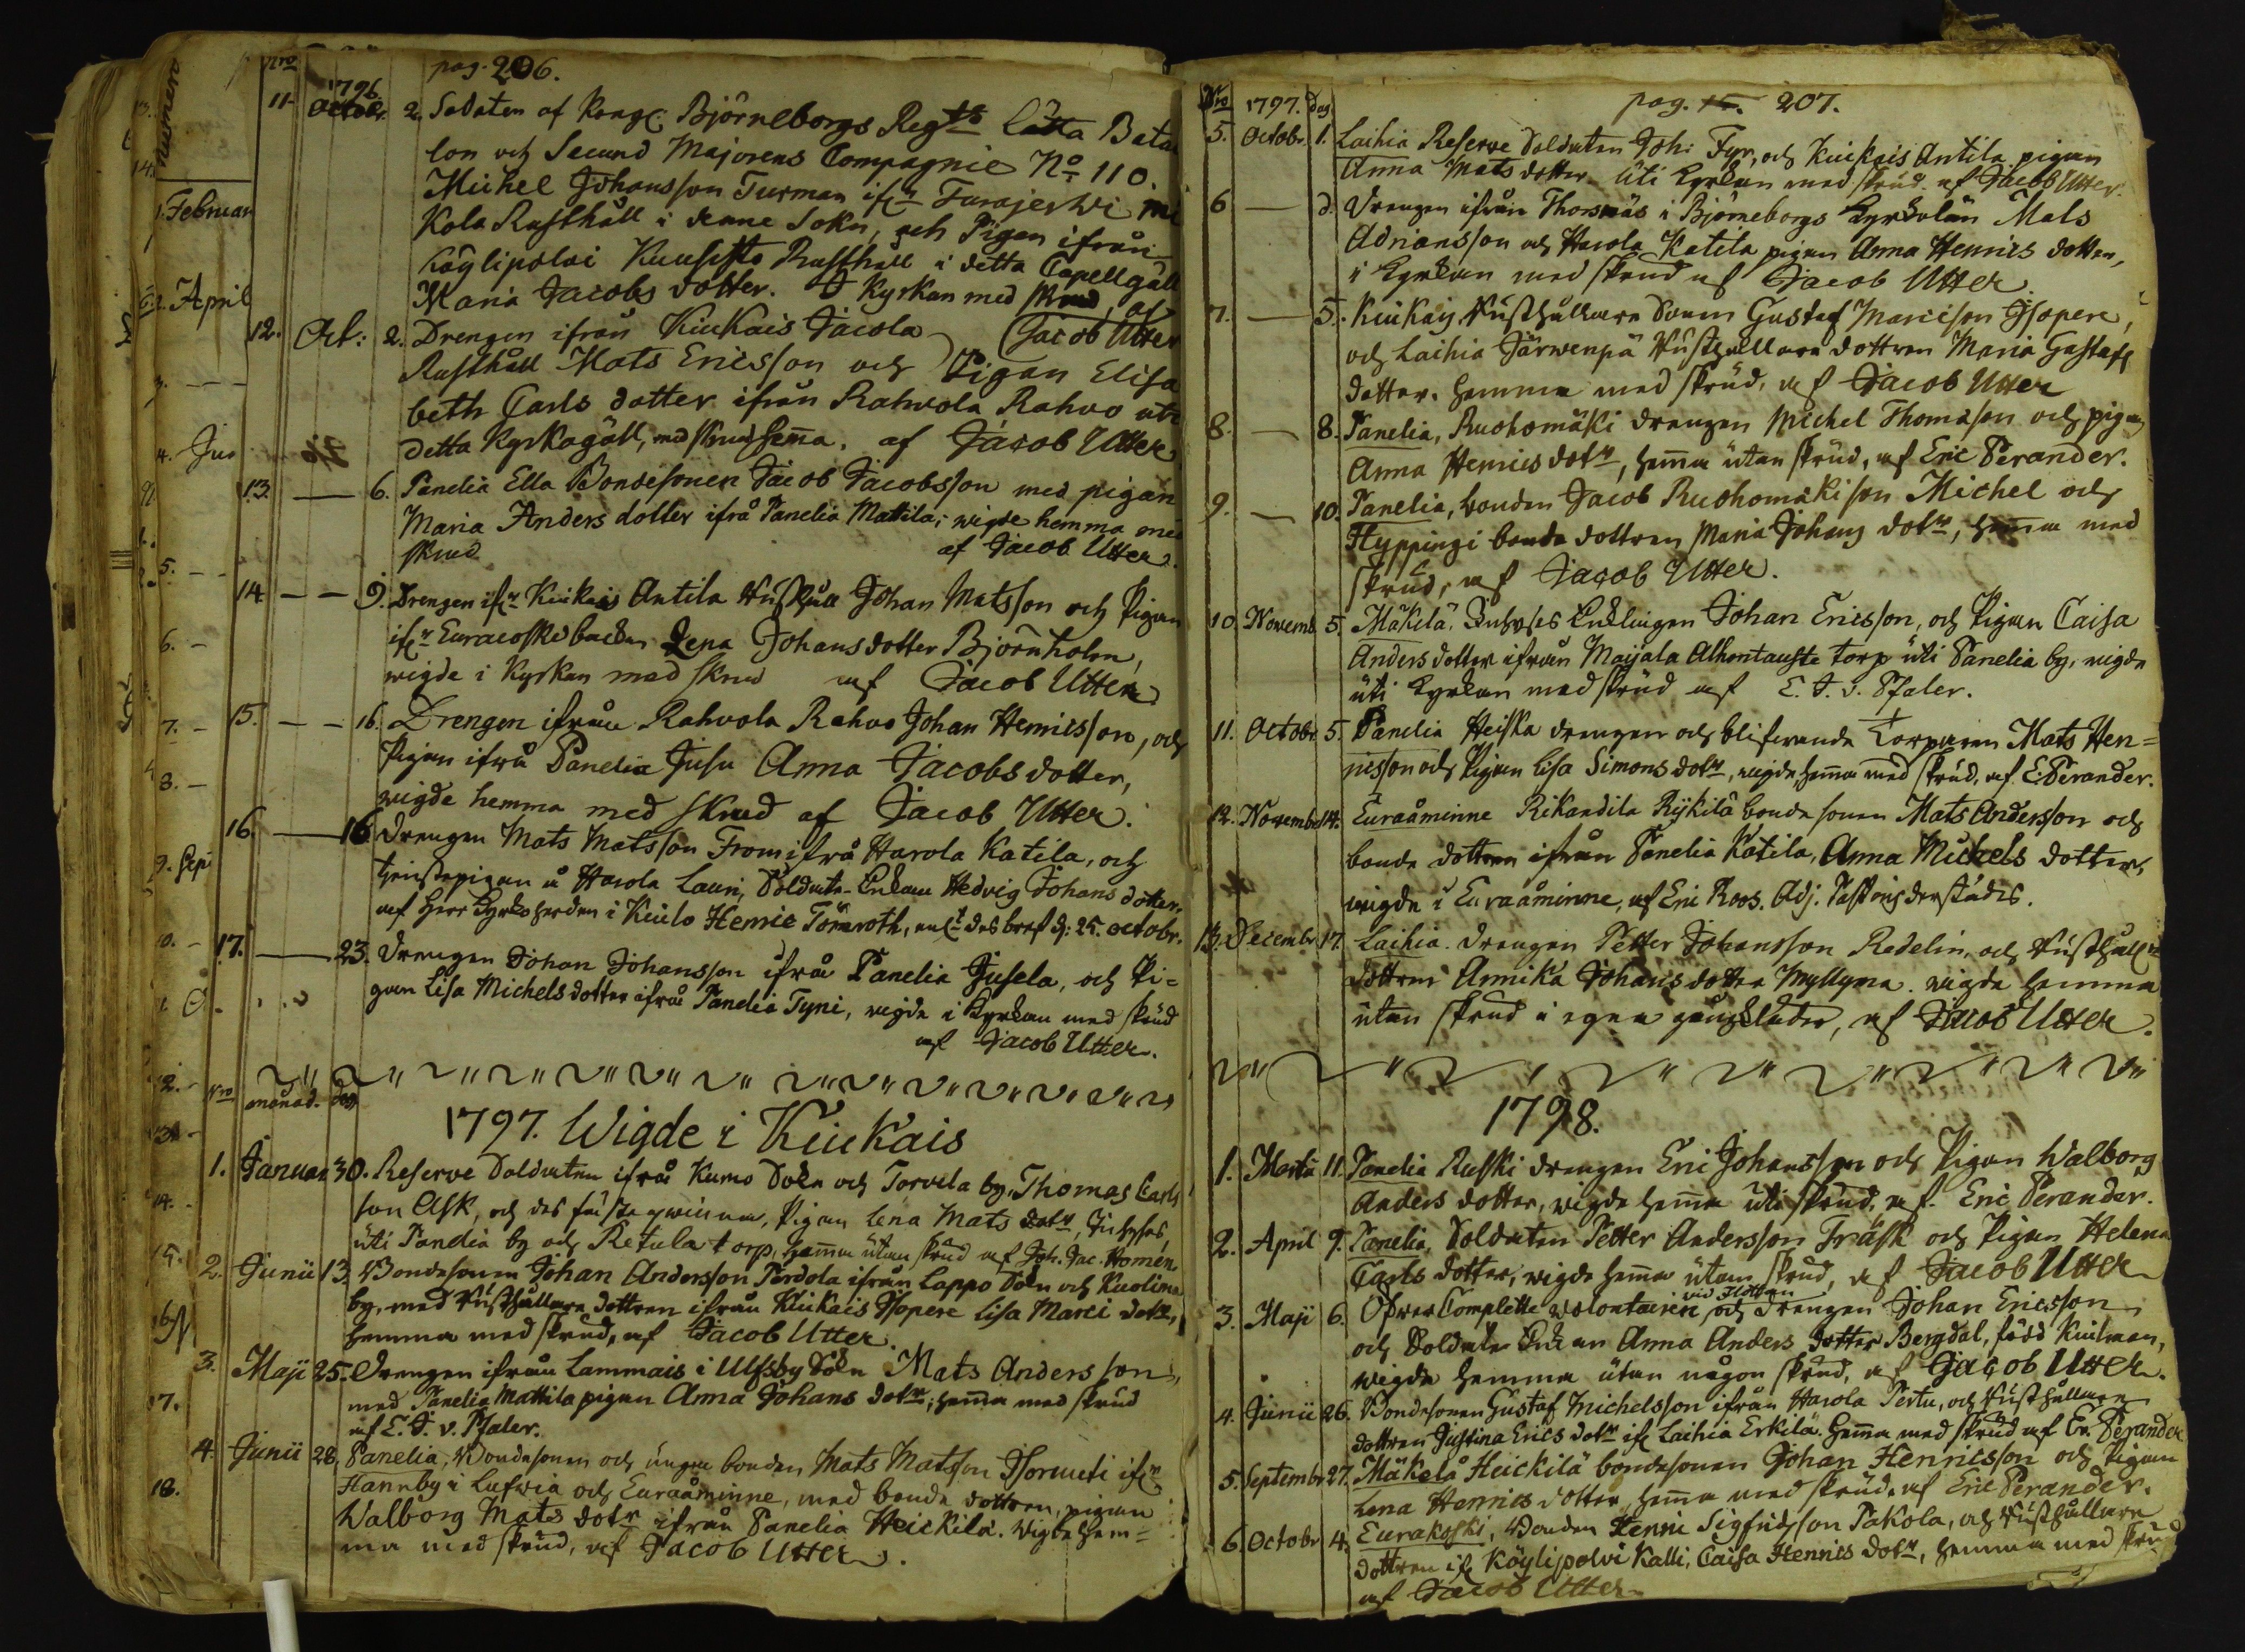 pag. 206.
Nro
1796.
11. Octobr. 2. Soldaten af Kongl. Björneborgs Regts Lätta Batal
lon och Secund Majorens Compagnie No 110.
Michel Johansson Turman ifr
Kola Rusthåll i denne Sokn, och Pigan ifrån
Köylipolvi Kuusisto Rusthåll i detta Capellgäll
Maria Jacobs dotter. I Kyrkan med skrud, af
Jacob Utter
12. Oct: 2. Drengen ifrån Kiukais Jacola
Rusthåll Mats Ericsson och Pigan Elisa
beth Carls dotter ifrån Rahvola Rahvo uti
detta Kyrkogäll, med skrud hema. af Jacob Utter
13. — 6. Panelia Ella Bondesonen Jacob Jacobsson med pigan
Maria Anders dotter ifrå Panelia Mattila; wigde hemma med
skrud af Jacob Utter.
14. — — 9. Drengen ifr Kiukais Antila Rusthåll Johan Matsson och Pigan
ifr Euracoski backen Lena Johans dotter Björnholm,
wigde i Kyrkan med skrud af Jacob Utter
15. — — 16. Drengen ifrån Rahvola Rahvo Johan Henricsson, och
Pigan ifrå Panelia Jusu Anna Jacobs dotter,
wigde hemma med skrud af Jacob Utter.
16. — 16. Drengen Mats Matsson From ifrå Harola Katila, och
tjenstepigan å Harola Lauri, Soldate-Enkan Hedvig Johans dotter.
af Herr Kyrkoherden i Kiulo Henric Törnroth, enl. des bref d: 25. octobr.
17. — 23. Drengen Johan Johansson ifrå Panelia Jusela, och Pi=
gan Lisa Michels dotter ifrå Panelia Tyni, wigde i Kyrkan med skrud
af Jacob Utter.
Nro månad. dag
1797. Wigde i Kiukais
1. Januar 30. Reserve Soldaten ifrå Kumo Sokn och Torvela by, Thomas Carls
son Ask, och des fästeqwinna, Pigan Lena Mats dotr,
uti Panelia by och Retula torp, hema utan skrud af Joh. Jac. Homén
2. Junii 13. Bondesonen Johan Andersson Perdola ifrån Lappo Sokn och Kuolima
by, med Rusthållare dottren ifrån Kiukais Isopere Lisa Marci dotr,
hemma med skrud, af Jacob Utter.
3. Maji 25. Drengen ifrån Lammais i Ulfsby Sokn Mats Andersson,
med Panelia Mattila pigan Anna Johans dotr; hema med skrud
af E. J. v. Pfaler.
4. Junii 28. Panelia, Bondesonen och unga bonden Mats Matsson Isorueti ifr
Hannby i Lufvia och Euraåminne, med bonde dottren, pigan
Walborg Mats dotr ifrån Panelia Heickilä. Wigde hem=
ma med skrud, af Jacob Utter.
numero
1. Februar
2. April
3. — —
4. Jun
5. — —
6. —
7. —
8. —
9. Sep
10. —
12. —
13. —
14. —
15.
16. N
17.
18.
pag. 15. 207.
Nro 1797. dag
5. Octobr. 1. Laihia Reserve Soldaten Joh: Fyr, och Kiukais Antila pigan
Anna Mats dotter uti Kyrkan med skrud af Jacob Utter.
6 — d. Drengen ifrån Thorsnäs i Björneborgs Kyrkolän Mats
Adriansson och Harola Katila pigan Anna Henrics dotter,
i Kyrkan med skrud af Jacob Utter.
7. — 5. Kiukais Rusthållare Sonen Gustaf Marcison Isopere,
och Laihia Järwenpä Rusthållare dottren Maria Gustafs
dotter. hemma med skrud, af Jacob Utter
8. — 8. Panelia, Ruohomäki drengen Michel Thomasson och pigan
Anna Henrics dotr, hema utan skrud, af Eric Perander.
9. — 10. Panelia, bonden Jacob Ruohomäki son Michel och
Hyppingi bonde dottren Maria Johans dotr, hema med
skrud, af Jacob Utter.
10. Novemb. 5. Mäkelä, Enklingen Johan Ericsson, och Pigan Caisa
Anders dotter ifrån Maijala Alhontausta torp uti Panelia by, wigde
uti Kyrkan med skrud af E. J. v. Pfaler.
11. Octobr. 5. Panelia Heiska drengen och blifvande Torparen Mats Hen=
ricsson och Pigan Lisa Simons dotr, wigde hema med skrud, af E. Perander.
12. Novembr 14. Euraåminne Rikandila Rijkilä bonde sonen Mats Andersson och
bonde dottren ifrån Panelia Katila, Anna Michels dotter,
wigde i Euraåminne, af Eric Roos. Adj. Pastoris derstädes.
13. Decembr 17. Laihia. Drengen Petter Johansson Redelin, och Rusthåll
dottren Annika Johans dotter Myllymä. wigde hemma
utan skrud i egna gångkläder, af Jacob Utter.
1798.
1. Martii 11. Panelia Ruski drengen Eric Johansson och Pigan Walborg
Anders dotter, wigde hema uti skrud, af Eric Perander.
2. April 9. Panelia, Soldaten Petter Andersson Träsk och Pigan Helena
Carls dotter, wigde hema utan skrud, af Jacob Utter
vid Flottan
3. Maji 6. Öfver Complette volontairen och Drengen Johan Ericsson
och Soldate Enkan Anna Anders dotter Bergdal, född Kuilman,
wigde hemma utan någon skrud, af Jacob Utter.
4. Junii 26. Bondesonen Gustaf Michelsson ifrån Harola Pertu, och Rusthållare
dottren Justina Erics dotr ifr Laihia Erkilä. hema med skrud af Er. Perander
5. Septembr 27. Mäkelä Heickilä bondesonen Johan Henricsson och Pigan
Lena Henrics dotter, hema med skrud. af Eric Perander.
6. Octobr 4. Eurakoski, Bonden Henric Sigfridsson Pakola, och Rusthållare
dottren ifr Köylipolvi Kalli, Caisa Henrics dotr, hemma med skrud
af Jacob Utter.